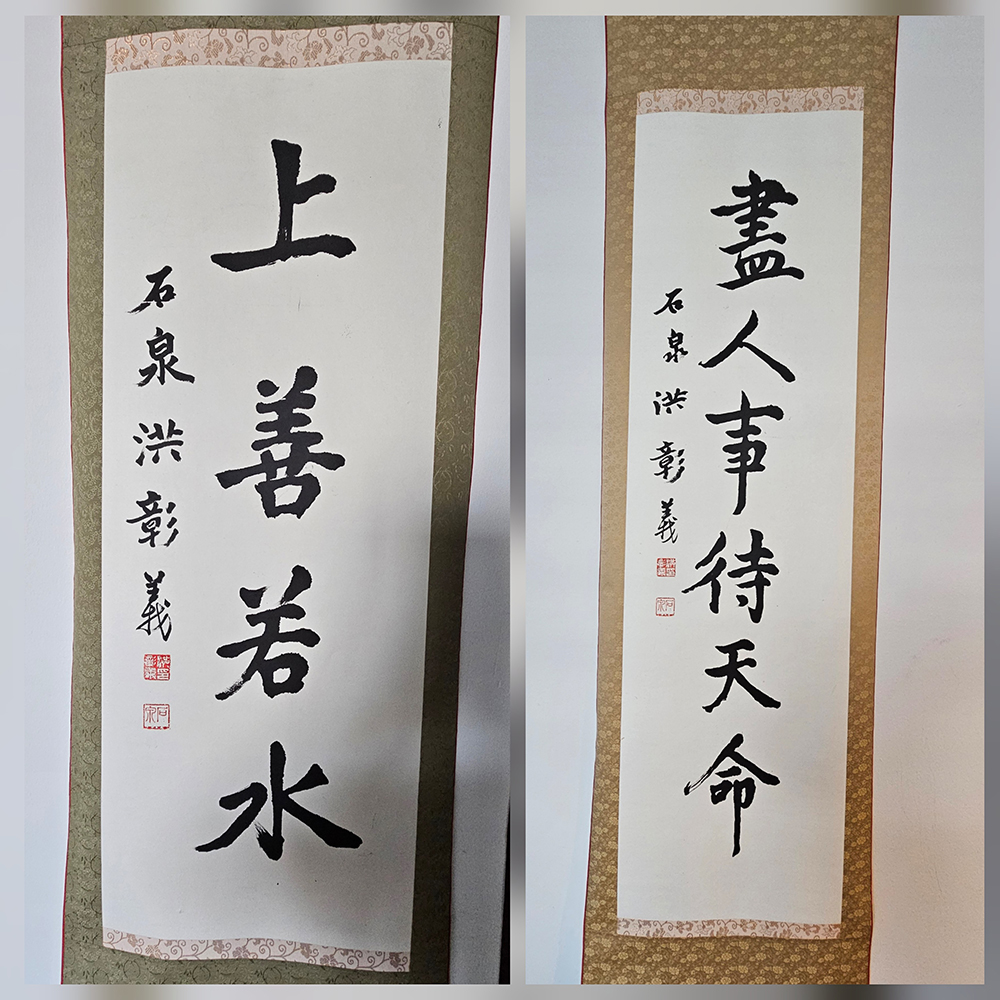 上善若水
石泉 洪彰義
盡人事待天命
石泉 洪彰義